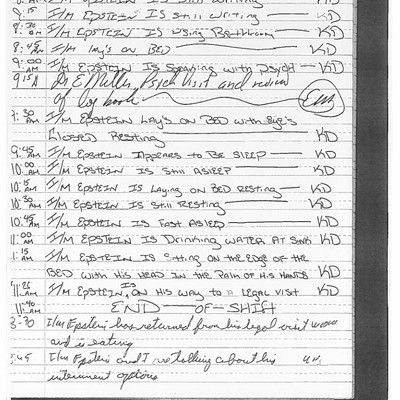 8:15 I/M EPSTEIN IS Still Writing — KD
8:30 AM I/M EPSTEIN IS Using Bathroom — KD
8:45 AM I/M lay's on BED — KD
9:00 AM I/M EPSTEIN IS Speaking with Psych — KD
9:15A Dr E Miller, Psych Visit and review
of log book
9:30 AM I/M EPSTEIN Lay's on BED with Eye's
Closed Resting — KD
9:45 AM I/M EPSTEIN Appears to Be Sleep — KD
10:00 AM I/M EPSTEIN IS Still Asleep — KD
10:15 AM I/M EPSTEIN IS Laying on BED Resting — KD
10:30 AM I/M EPSTEIN IS Still Resting — KD
10:45 AM I/M EPSTEIN IS Fast Asleep — KD
11:00 AM I/M EPSTEIN IS Drinking WATER At Sink KD
11:15 AM I/M EPSTEIN IS Sitting on the EDGE of the
BED with His HEAD in the Palm of His HANDS KD
11:26 AM I/M EPSTEIN IS ON His WAY to A legal visit KD
11:40 AM END — OF — SHIFT
I/m Epstein has returned from his legal visit
and is eating
I/m Epstein and I are talking about his
interment options